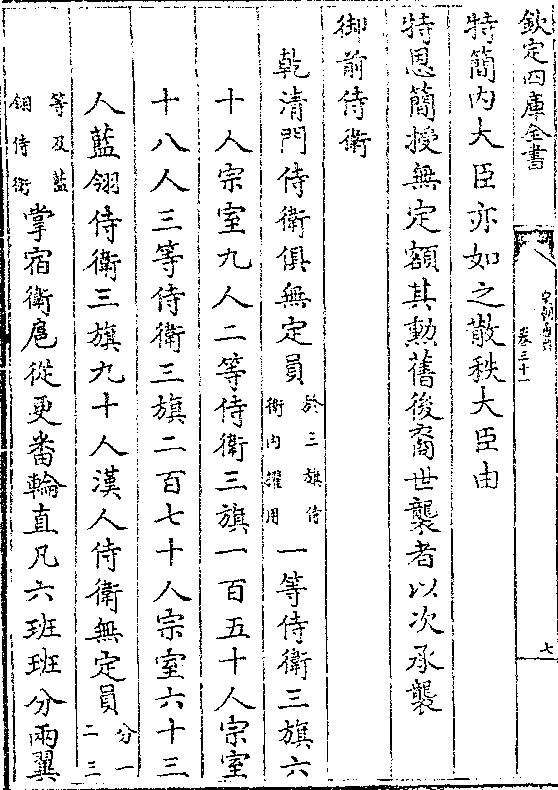 欽定四庫全書
皇朝通典
卷三十一
七
特簡内大臣亦如之散秩大臣由
特恩簡授無定額其勲舊後裔世襲者以次承襲
御前侍衛
乾清門侍衛俱無定員於三旗侍衛内擢用一等侍衛三旗六
十人宗室九人二等侍衛三旗一百五十人宗室
十八人三等侍衛三旗二百七十人宗室六十三
人藍翎侍衛三旗九十人漢人侍衛無定員分一二三
等及藍翎侍衛掌宿衛扈從更畨輪直凡六班班分兩翼